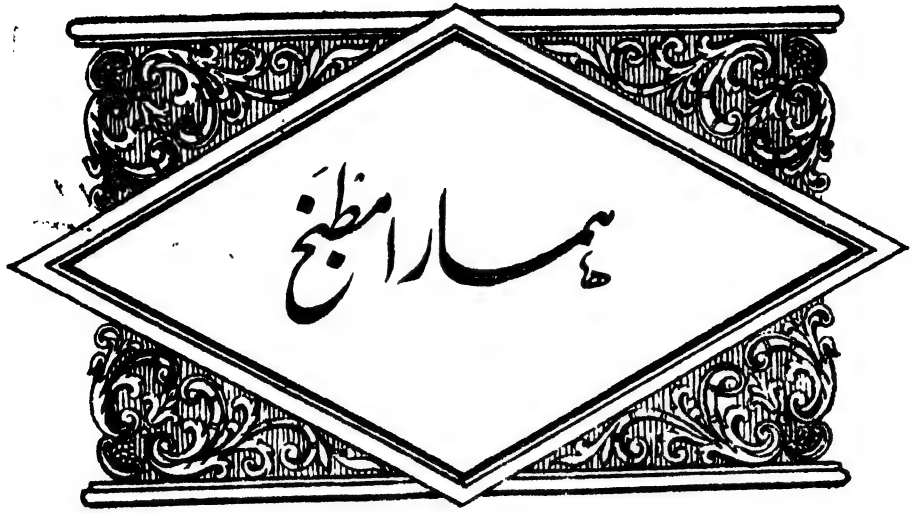 ہمارا مطبخ